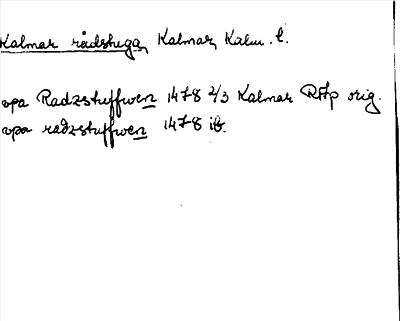 Kalmar rådstuga, Kalmar, Kalm. l.
vpa Radzstuffwen 1478 2/3 Kalmar RAp orig.
vpa radzstuffwen 1478 ib.